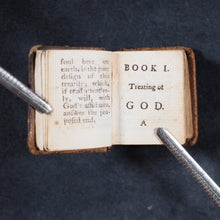 foul here on
earth, is the pure
design of this
treatise, which,
if read attentive-
ly, will, with
God's assistance,
answer the pro-
posed end.
BOOK I.
Treating of
GOD.
A